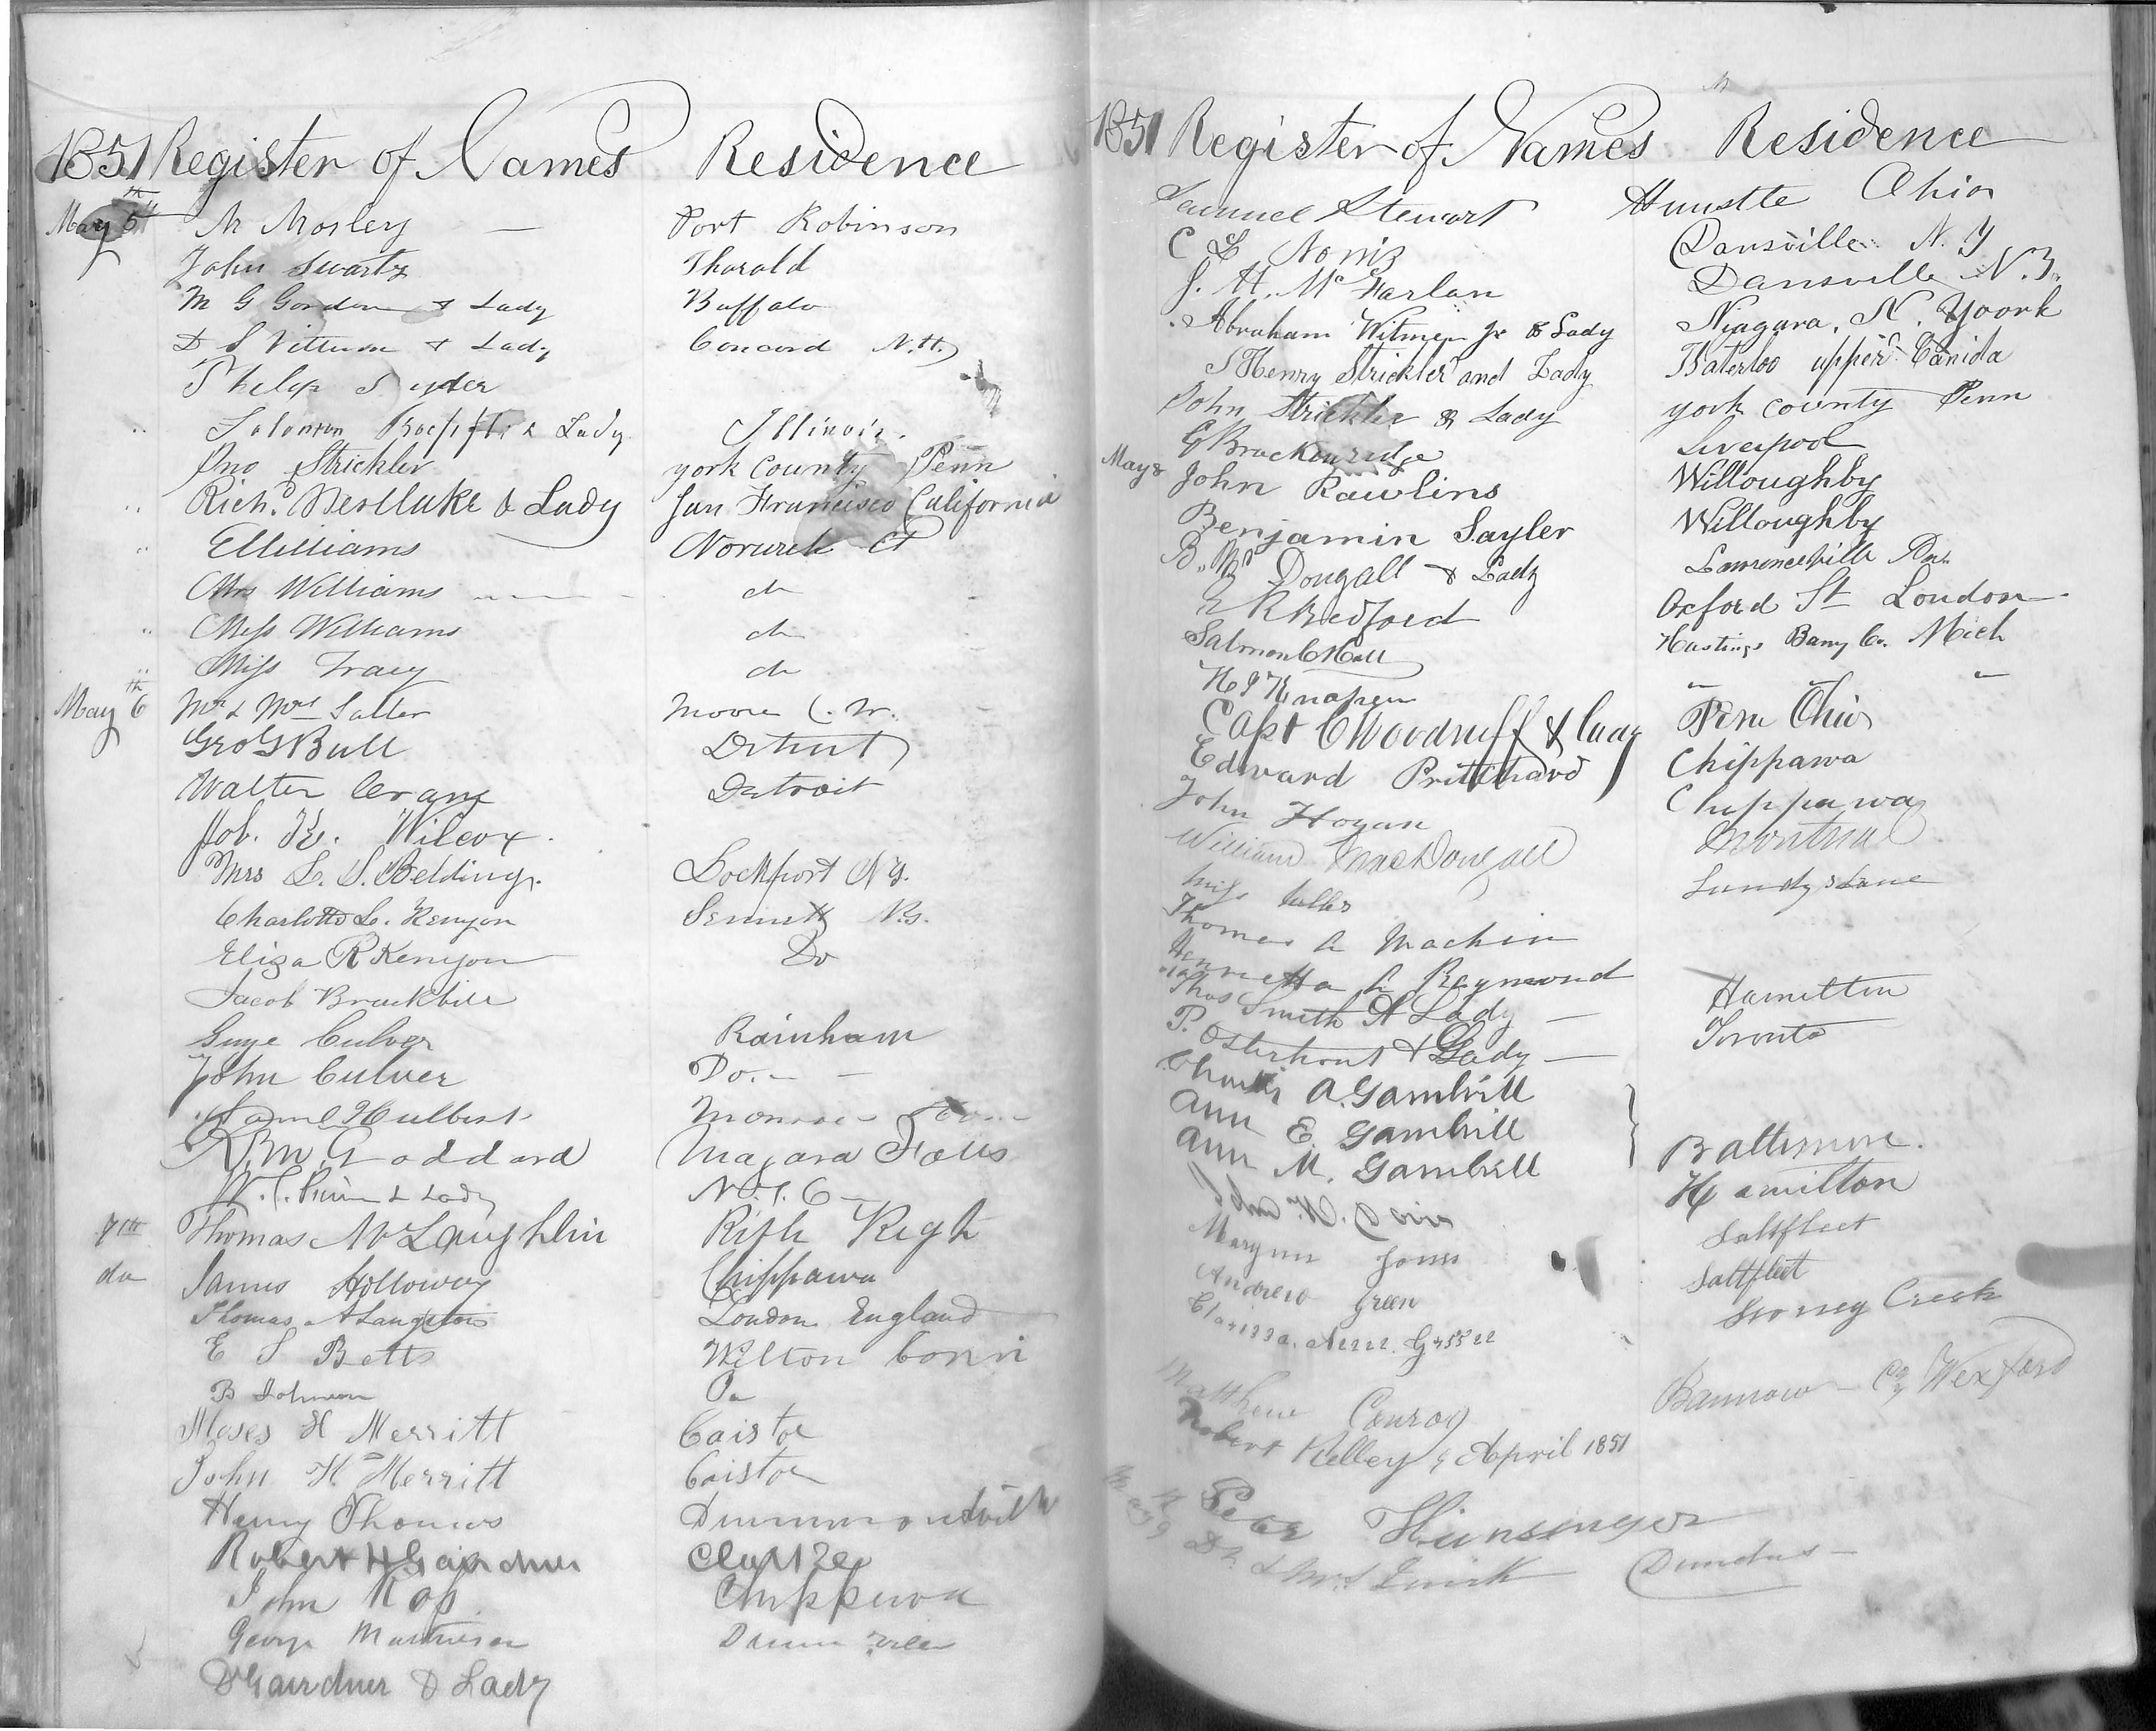 1851 Register of Names Residence
May 5th M Mosley — Port Robinson
John Swartz Thorold
M G Gordon & Lady Buffalo
D S Vittum & Lady Concord N.H.
Philip Snyder
Solomon & Lady Illinois.
Jno Strickler york county Penn
Richd. Westlake & Lady San Francisco California
E Williams Norwich Ct
Mrs Williams do
Miss Williams do
Miss Tracy do
May 6th Mr & Mrs Salter Moore C. W.
Geo G Bull Detroit
Walter Crane Detroit
Job. Wilcox.
Mrs L. S. Belding. Lockport N Y.
Charlotte L. Kenyon Sennett N.Y.
Eliza R Kenyon Do
Jacob Brackbill
Culver Rainham
John Culver Do. -
Saml Hulbert Monroe
R. M. Goddard Niagara Falls
W. C. & Lady N. Y. C
7th Thomas McLaughlin
do James Holloway Chippawa
Thomas A Langston London England
E S Betts Wilton Conn
B Johnson Do
Moses H Merritt Caistor
John H Merritt Caistor
Henry Thomas Drummondville
Robert H Gairdner
John Chippewa
George Mathieson
D Gairdner & Lady
1851 Register of Names Residence
Samuel Stewart Ohio
C L Norris Dansville N. Y
J. H. McFarlan Dansville N. Y.
Abraham Witmer Jr & Lady Niagara, N. Yoork
Henry Strickler and Lady Waterloo upper Canida
John Strickler & Lady york county Penn
G Brackenridge Liverpool
May 8 John Rawlins Willoughby
Benjamin Sayler Willoughby
B. Mc Dougall & Lady Lawrenceville
R Bedford Oxford St London
Salmon C Hall Hastings Barry Co. Mich
H J Knappen " "
Capt C Woodruff & Lady Peru Ohio
Edward Pritchard Chippawa
John Hogan Chippawa
William MacDougall Montreal
Miss Lundys Lane
Thomas A Machin
Henrietta A Raymond
Thos Smith & Lady — Hamilton
P. Osterhout & Lady — Toronto
Charles A. Gambrill
Ann E. Gambrill
Ann M. Gambrill Baltimore.
Hamilton
Maryann Jones Saltfleet
Andrew Green Saltfleet
Clarissa Ann Green Stoney Creek
Matthew Conroy Bannow Co Wexford
Robert Kelley 9 April 1851
May 9 Peter Hunsinger
Dr & Mrs Quick Dundas —